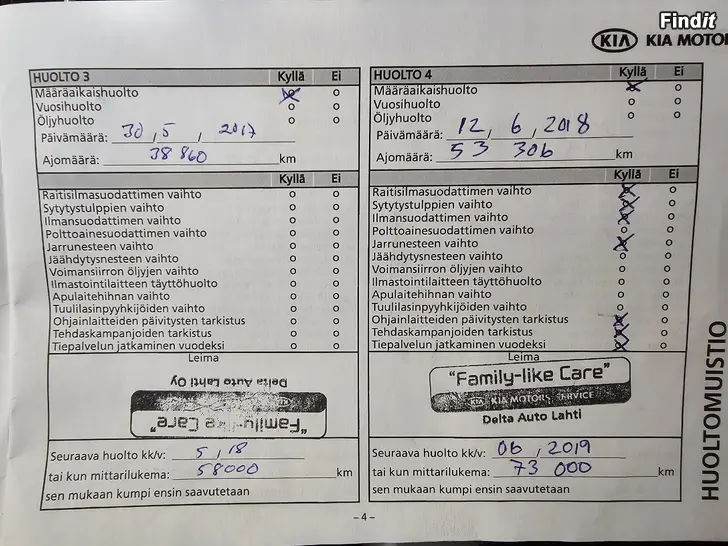 Findit
KIA KIA MOTOR
HUOLTO 3 Kyllä Ei
Määräaikaishuolto o o
Vuosihuolto o o
Öljyhuolto o o
Päivämäärä: 30, 5, 2017
Ajomäärä: 38 860 km
Kyllä Ei
Raitisilmasuodattimen vaihto o o
Sytytystulppien vaihto o o
Ilmansuodattimen vaihto o o
Polttoainesuodattimen vaihto o o
Jarrunesteen vaihto o o
Jäähdytysnesteen vaihto o o
Voimansiirron öljyjen vaihto o o
Ilmastointilaitteen täyttöhuolto o o
Apulaitehihnan vaihto o o
Tuulilasinpyyhkijöiden vaihto o o
Ohjainlaitteiden päivitysten tarkistus o o
Tehdaskampanjoiden tarkistus o o
Tiepalvelun jatkaminen vuodeksi o o
Leima
"Family-like Care"
Delta Auto Lahti Oy
Seuraava huolto kk/v: 5, 18
tai kun mittarilukema: 58000 km
sen mukaan kumpi ensin saavutetaan
HUOLTO 4 Kyllä Ei
Määräaikaishuolto x o
Vuosihuolto o o
Öljyhuolto o o
Päivämäärä: 12, 6, 2018
Ajomäärä: 53 306 km
Kyllä Ei
Raitisilmasuodattimen vaihto x o
Sytytystulppien vaihto x o
Ilmansuodattimen vaihto x o
Polttoainesuodattimen vaihto o o
Jarrunesteen vaihto x o
Jäähdytysnesteen vaihto o o
Voimansiirron öljyjen vaihto o o
Ilmastointilaitteen täyttöhuolto o o
Apulaitehihnan vaihto o o
Tuulilasinpyyhkijöiden vaihto o o
Ohjainlaitteiden päivitysten tarkistus x o
Tehdaskampanjoiden tarkistus x o
Tiepalvelun jatkaminen vuodeksi x o
Leima
"Family-like Care"
KIA KIA MOTORS SERVICE
Delta Auto Lahti
Seuraava huolto kk/v: 06, 2019
tai kun mittarilukema: 73 000 km
sen mukaan kumpi ensin saavutetaan
HUOLTOMUISTIO
– 4 –